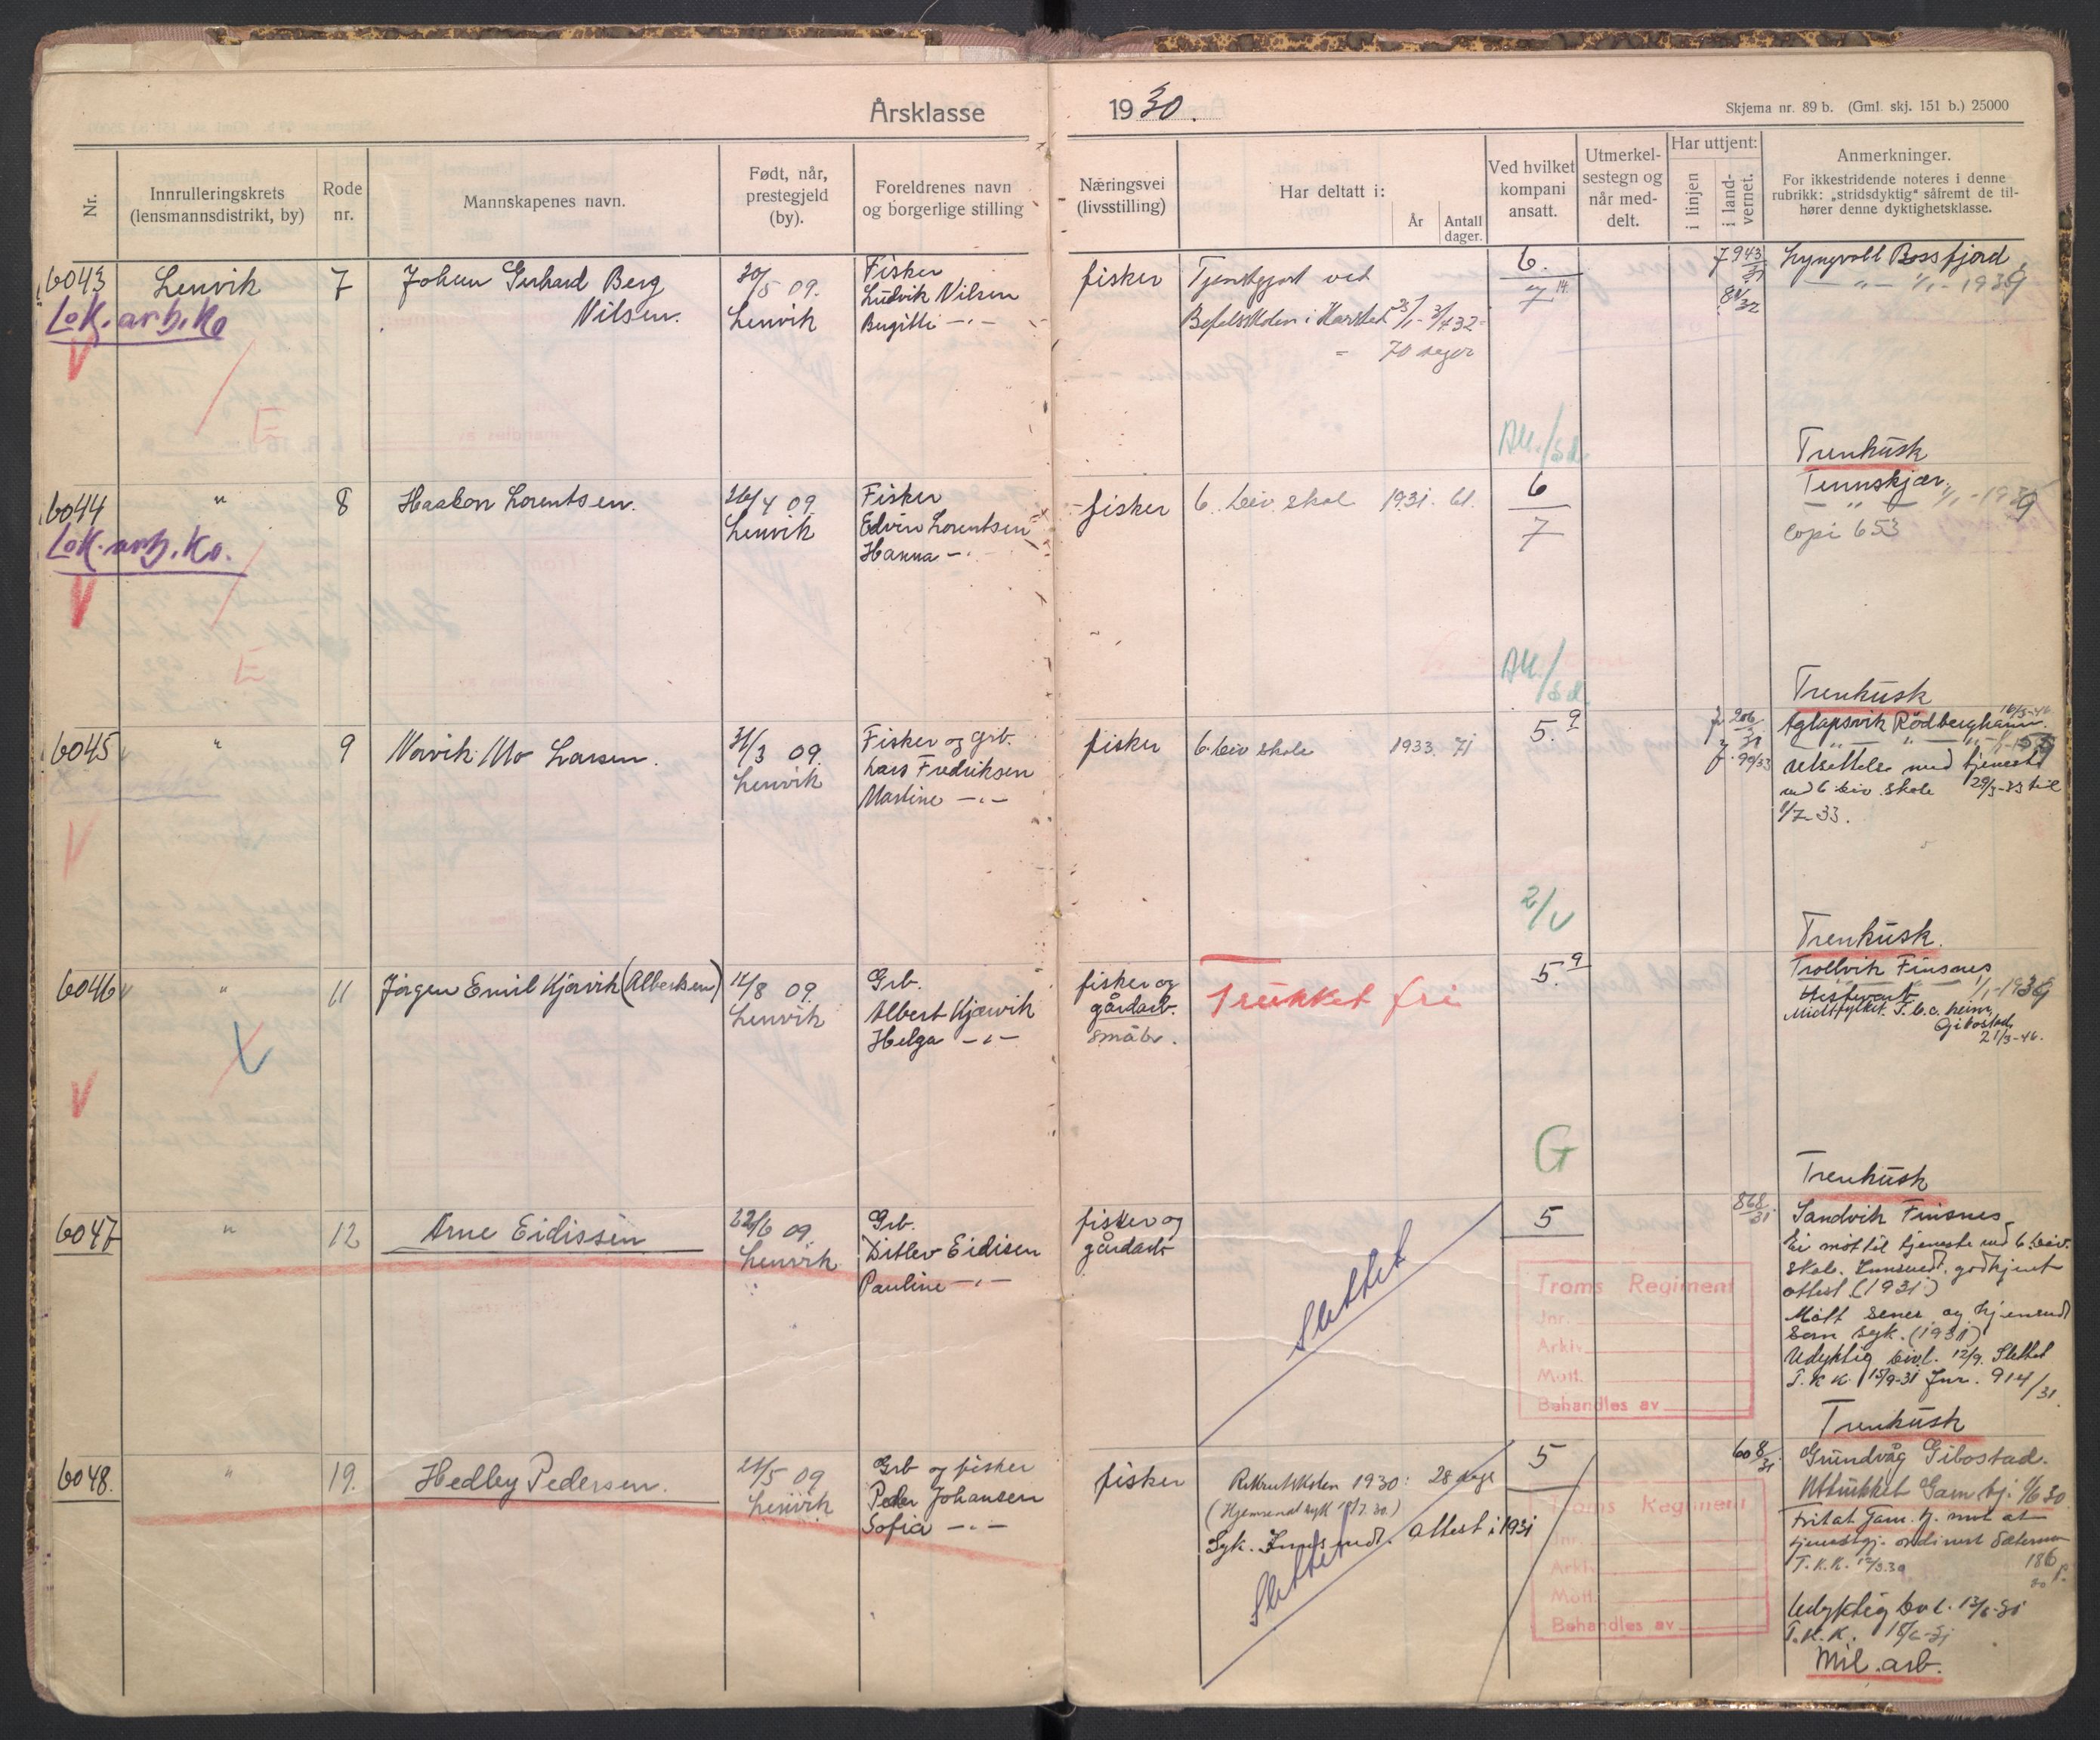 Årsklasse 1930.
Skjema nr. 89 b. (Gml. skj. 151 b.) 25000
Nr.
Innrulleringskrets
(lensmannsdistrikt, by)
Rode
nr.
Mannskapenes navn.
Født, når,
prestegjeld
(by).
Foreldrenes navn
og borgerlige stilling
Næringsvei
(livsstilling)
Har deltatt i:
År
Antall
dager.
Ved hvilket
kompani
ansatt.
Utmerkel-
sestegn og
når med-
delt.
Har uttjent:
i linjen
i land-
vernet.
Anmerkninger.
For ikkestridende noteres i denne
rubrikk: „stridsdyktig“ såfremt de til-
hører denne dyktighetsklasse.
6043
Lok.arb.Ko
Lenvik
7
Johan Gerhard Berg
Nilsen.
30/5 09.
Lenvik
Fisker
Ludvik Nilsen
Birgitte -"-
fisker
Tjenstgjort ved
Befalsskolen i Harstad
70 dager
6.
7
943/31
Lyngvoll Rossfjord
1/1-1939
E
Trenkusk
6044
Lok.arb.Ko.
"
8
Haakon Lorentsen.
26/4 09
Lenvik
Fisker
Edvin Lorentsen
Hanna -"-
fisker
6. Div. skole 1931. 61.
6
7
Tennskjær.
1/1-1939
copi 653
E
Trenkusk
6045
"
9
Norvik Mo Larsen.
31/3 09.
Lenvik
Fisker og grb.
Lars Fredriksen
Martine -"-
fisker
6. Div skole 1933. 71
5. 9
206/31
Aglapsvik Rødberghamn.
utsettelse med tjeneste
ved 6. Div. skole 29/3-33 til
1/7-33.
2/V
Trenkusk.
6046
"
11
Jørgen Emil Kjørvik (Albertsen)
12/8 09.
Lenvik
Grb.
Albert Kjærvik
Helga -"-
fisker og
gårdarb.
småbr.
Trukket fri
5. 9
Trollvik Finsnes
1/1-1939
Gibostad
21/3-46.
G
Trenkusk
6047
"
12
Arne Eidissen
22/6 09.
Lenvik
Grb.
Ditlev Eidisen
Pauline -"-
fisker og
gårdarb
Slettet
5
868/31
Sandvik Finsnes
Ei møt til tjeneste ved 6. Div.
skole. Innsendt godkjent
attest (1931)
Møtt senere og hjemsendt
som syk. (1931)
Udyktig Divl. 12/9. Slettet
T.K.K. 15/9-31 Jnr. 914/31.
Troms Regiment
Jnr.
Arkiv
Mott.
Behandles av
Trenkusk
6048.
"
19.
Hedley Pedersen.
21/5 09
Lenvik
Grb og fisker
Peder Johansen
Sofia -"-
fisker
Rekrutskolen 1930: 28 dage
(Hjemsendt syk 18/7.30.)
Syk. Innsendt attest i 1931
Slettet
5
608/31
Grundvåg Gibostad.
Uttrukket Garn.tj. 1/6 30
Fritat Garn.tj. mot at
T.K.K.
186
Udyktig Divl. 13/6-31
T.K.K. 18/6-31
Mil.arb.
Troms Regiment
Jnr.
Arkiv
Mott.
Behandles av